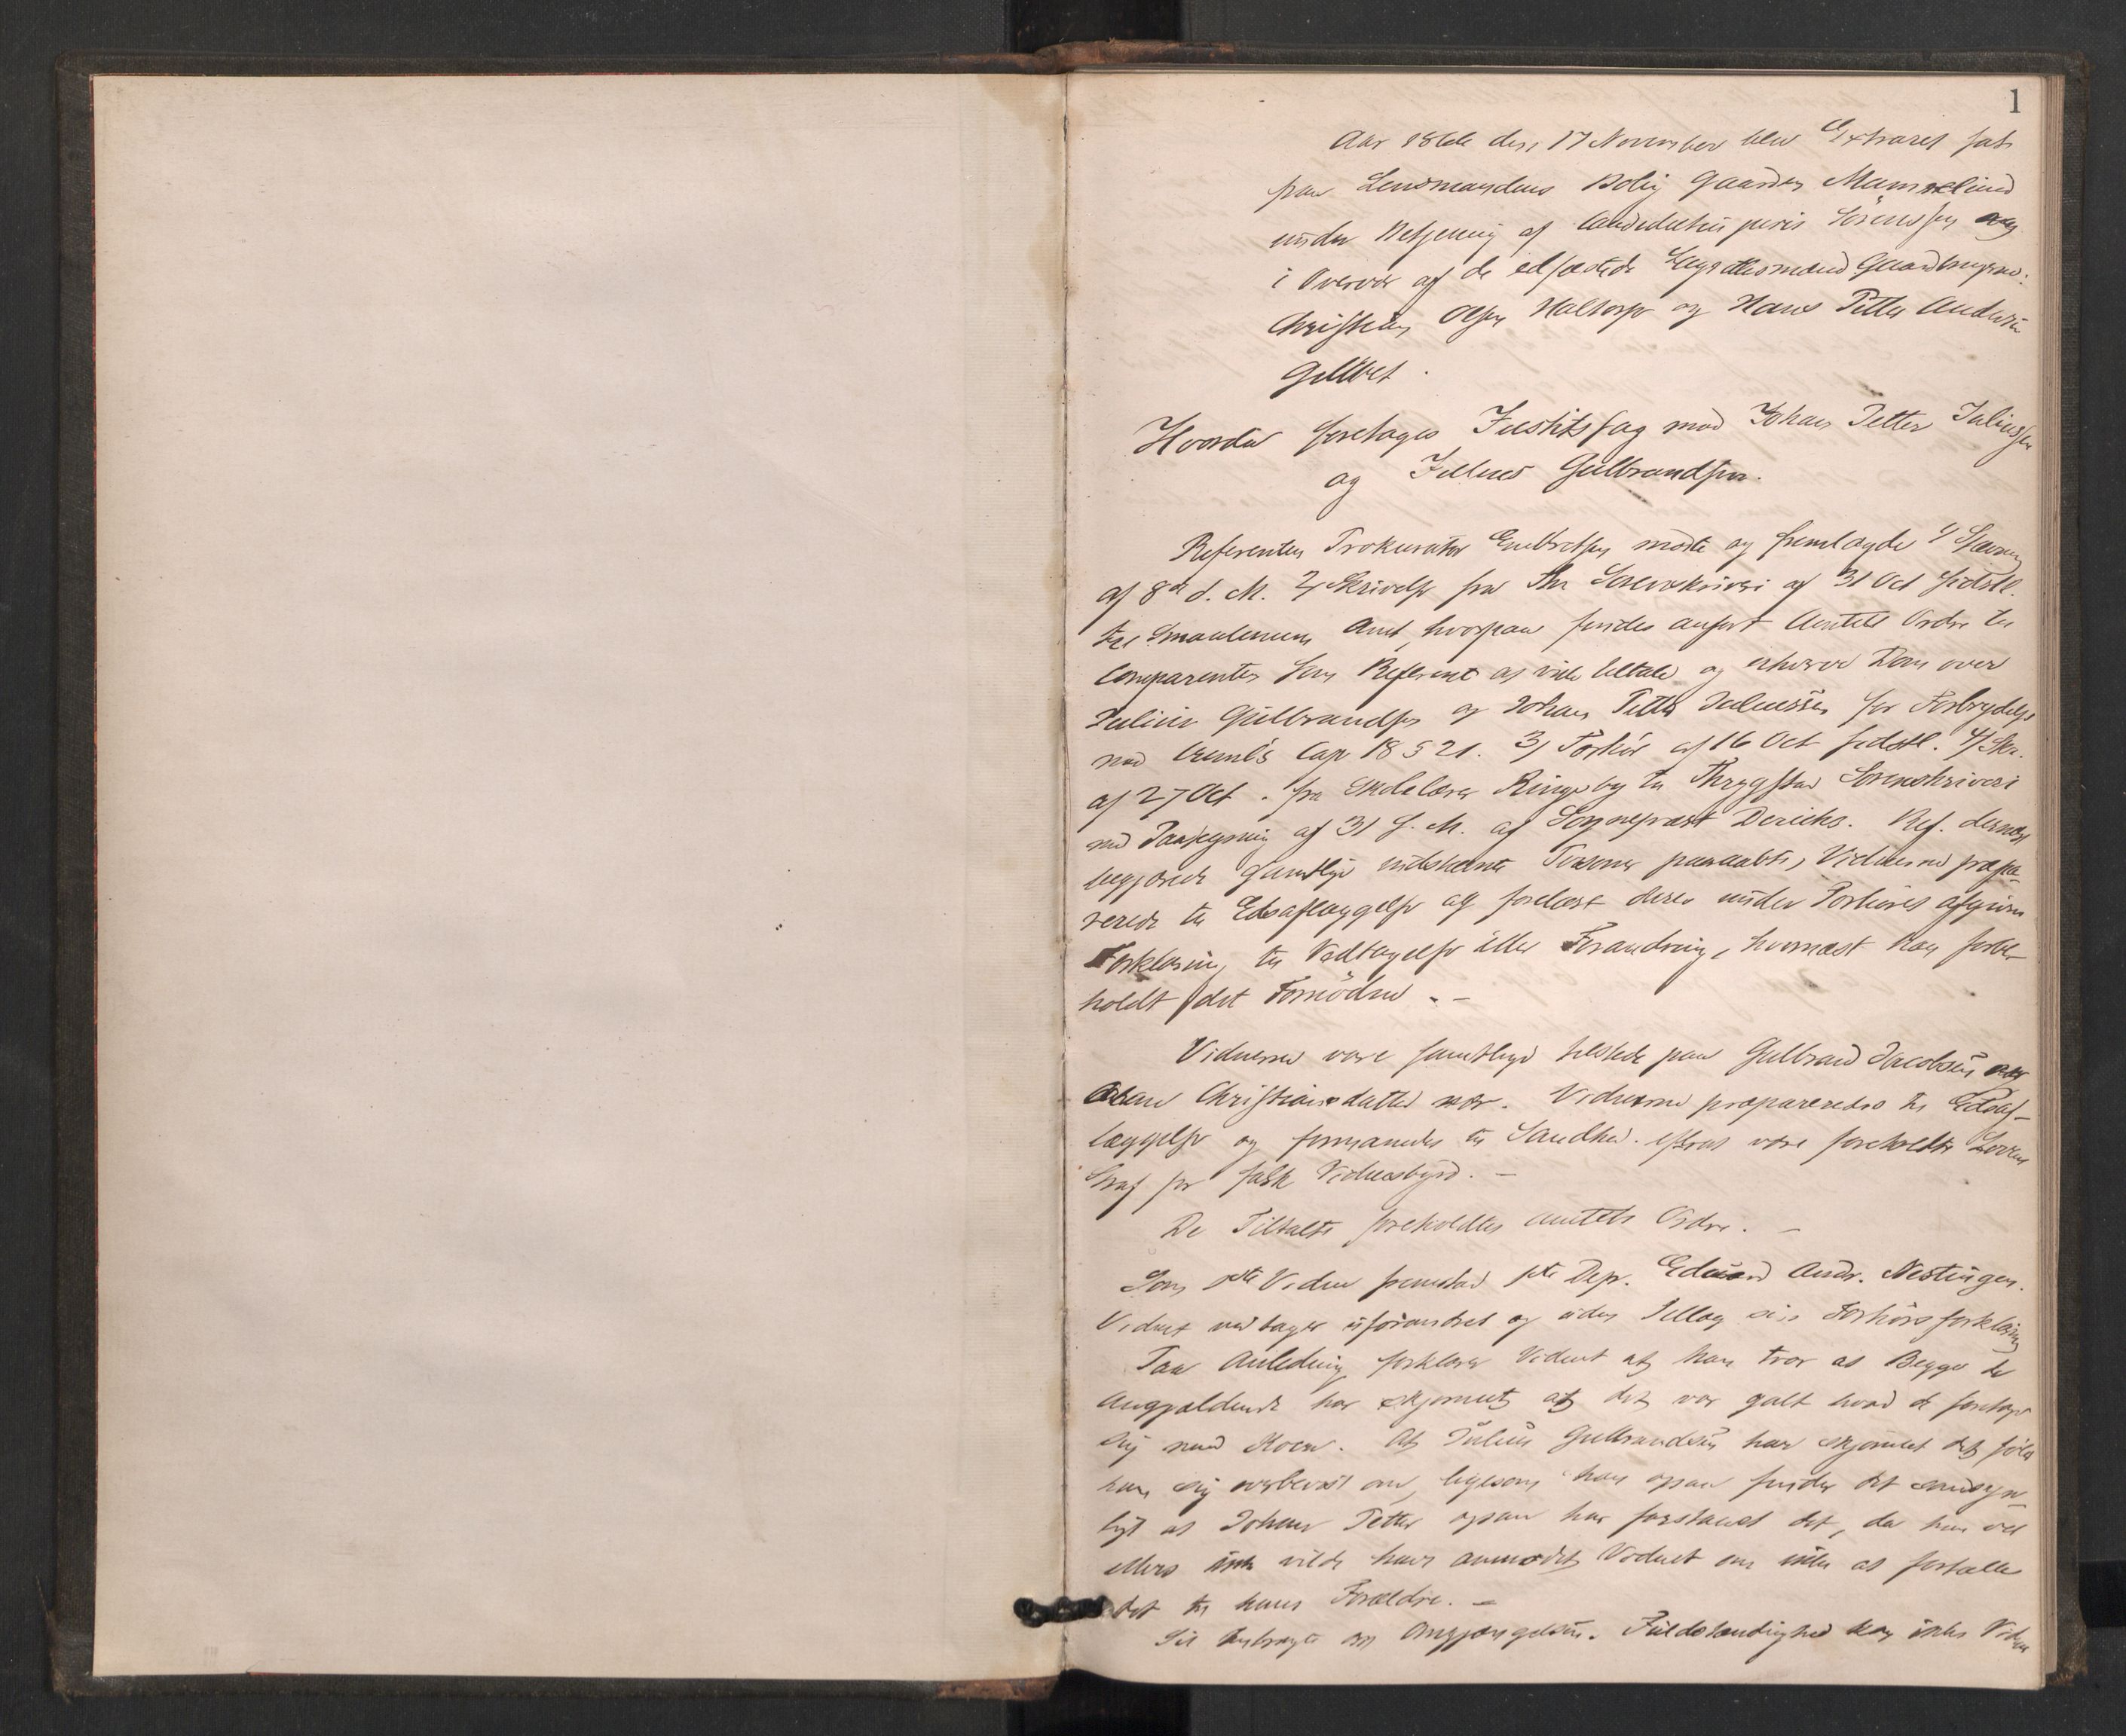 1
Aar 1866 den 17 November blev Extraret sat
paa Lensmandens Bolig Gaarden Mamrelund
under Betjening af Candidatus juris Sörensen og
i Overvær af de edfæstede Laugrettesmænd Gaardbrugerne:
Christian Olsen Haltorp og Hans Petter Andersen
Hvorda foretages Justitssag mod Johan Petter Juliussen
og Julius Gulbrandsen.
Referenten Prokurator Engebretsen mödte og fremlagde 1/ Stævning
af 8de d. M. 2/ Skrivelse fra Sorenskriveri af 31 Oct sidstl.
til Smaalenenes Amt, hvorpaa findes anfört Amtets Ordre til
Comparenten som Referent at ville tiltale og erhverve Dom over
Julius Gulbrandsen og Johan Petter Juliussen for Forbrydelse
mod Criml's Cap 18 § 21. 3/ Forhör af 16 Oct sidstl. 4/ Skr.
af 27 Oct. fra Skolelærer Ringsby til Thrygstad Sorenskriveri
med Paategning af 31 s. M. af Sogneprest Derichs. Ref. dernæst
begjærede samtlige indstevnte Personer paaraabte, Vidnerne præpa-
rerede til Edsaflæggelse og forelæst deres under Forhöret afgivne
Forklaring til Vedtagelse eller Forandring, hvornæst han forbe-
holdt sit Fornödne. -
Vidnerne vare samtlige tilstede paa Gulbrand Jacobsen og
Christiansdatter nær. Vidnerne præpareredes til Edsaf-
læggelse og formanedes til Sandhed. efterat være foreholdte Lovens
Straf for falsk Vidnesbyrd. -
De Tiltalte foreholdtes Amtets Ordre. -
Som 1ste Vidne fremstod 1ste Dep. Eduard Andr. Nestingen.
Vidnet vedtager uforandret og uden Tillæg sin Forhörsforklaring
Paa Anledning forklarer Vidnet at han tror at Begge de
Angjældende har skjönnet at det var galt hvad de foretog
sig med Koen. At Julius Gulbrandsen har skjönnet det föler
han sig overbevist om, ligesom han ogsaa finder det sandsyn-
ligt at Johan Petter ogsaa har forstaaet det, da han vel
ellers ikke vilde have anmodet Vidnet om ikke at fortælle
det til hans Forældre. -
Sit om Omgjængelsens Fuldstændighed kan ikke Vidnet